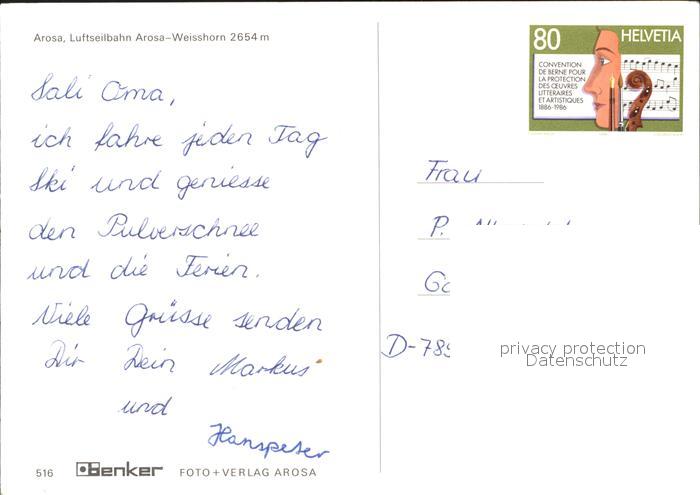 Arosa, Luftseilbahn Arosa–Weisshorn 2654 m
Sali Oma,
ich fahre jeden Tag
Ski und geniesse
den Pulverschnee
und die Ferien.
Viele Grüsse senden
Dir Dein Markus
und
Hanspeter
516 Benker FOTO+VERLAG AROSA
80 HELVETIA
CONVENTION
DE BERNE POUR
LA PROTECTION
DES ŒUVRES
LITTERAIRES
ET ARTISTIQUES
1886-1986
Frau
P.
D-789
privacy protection
Datenschutz